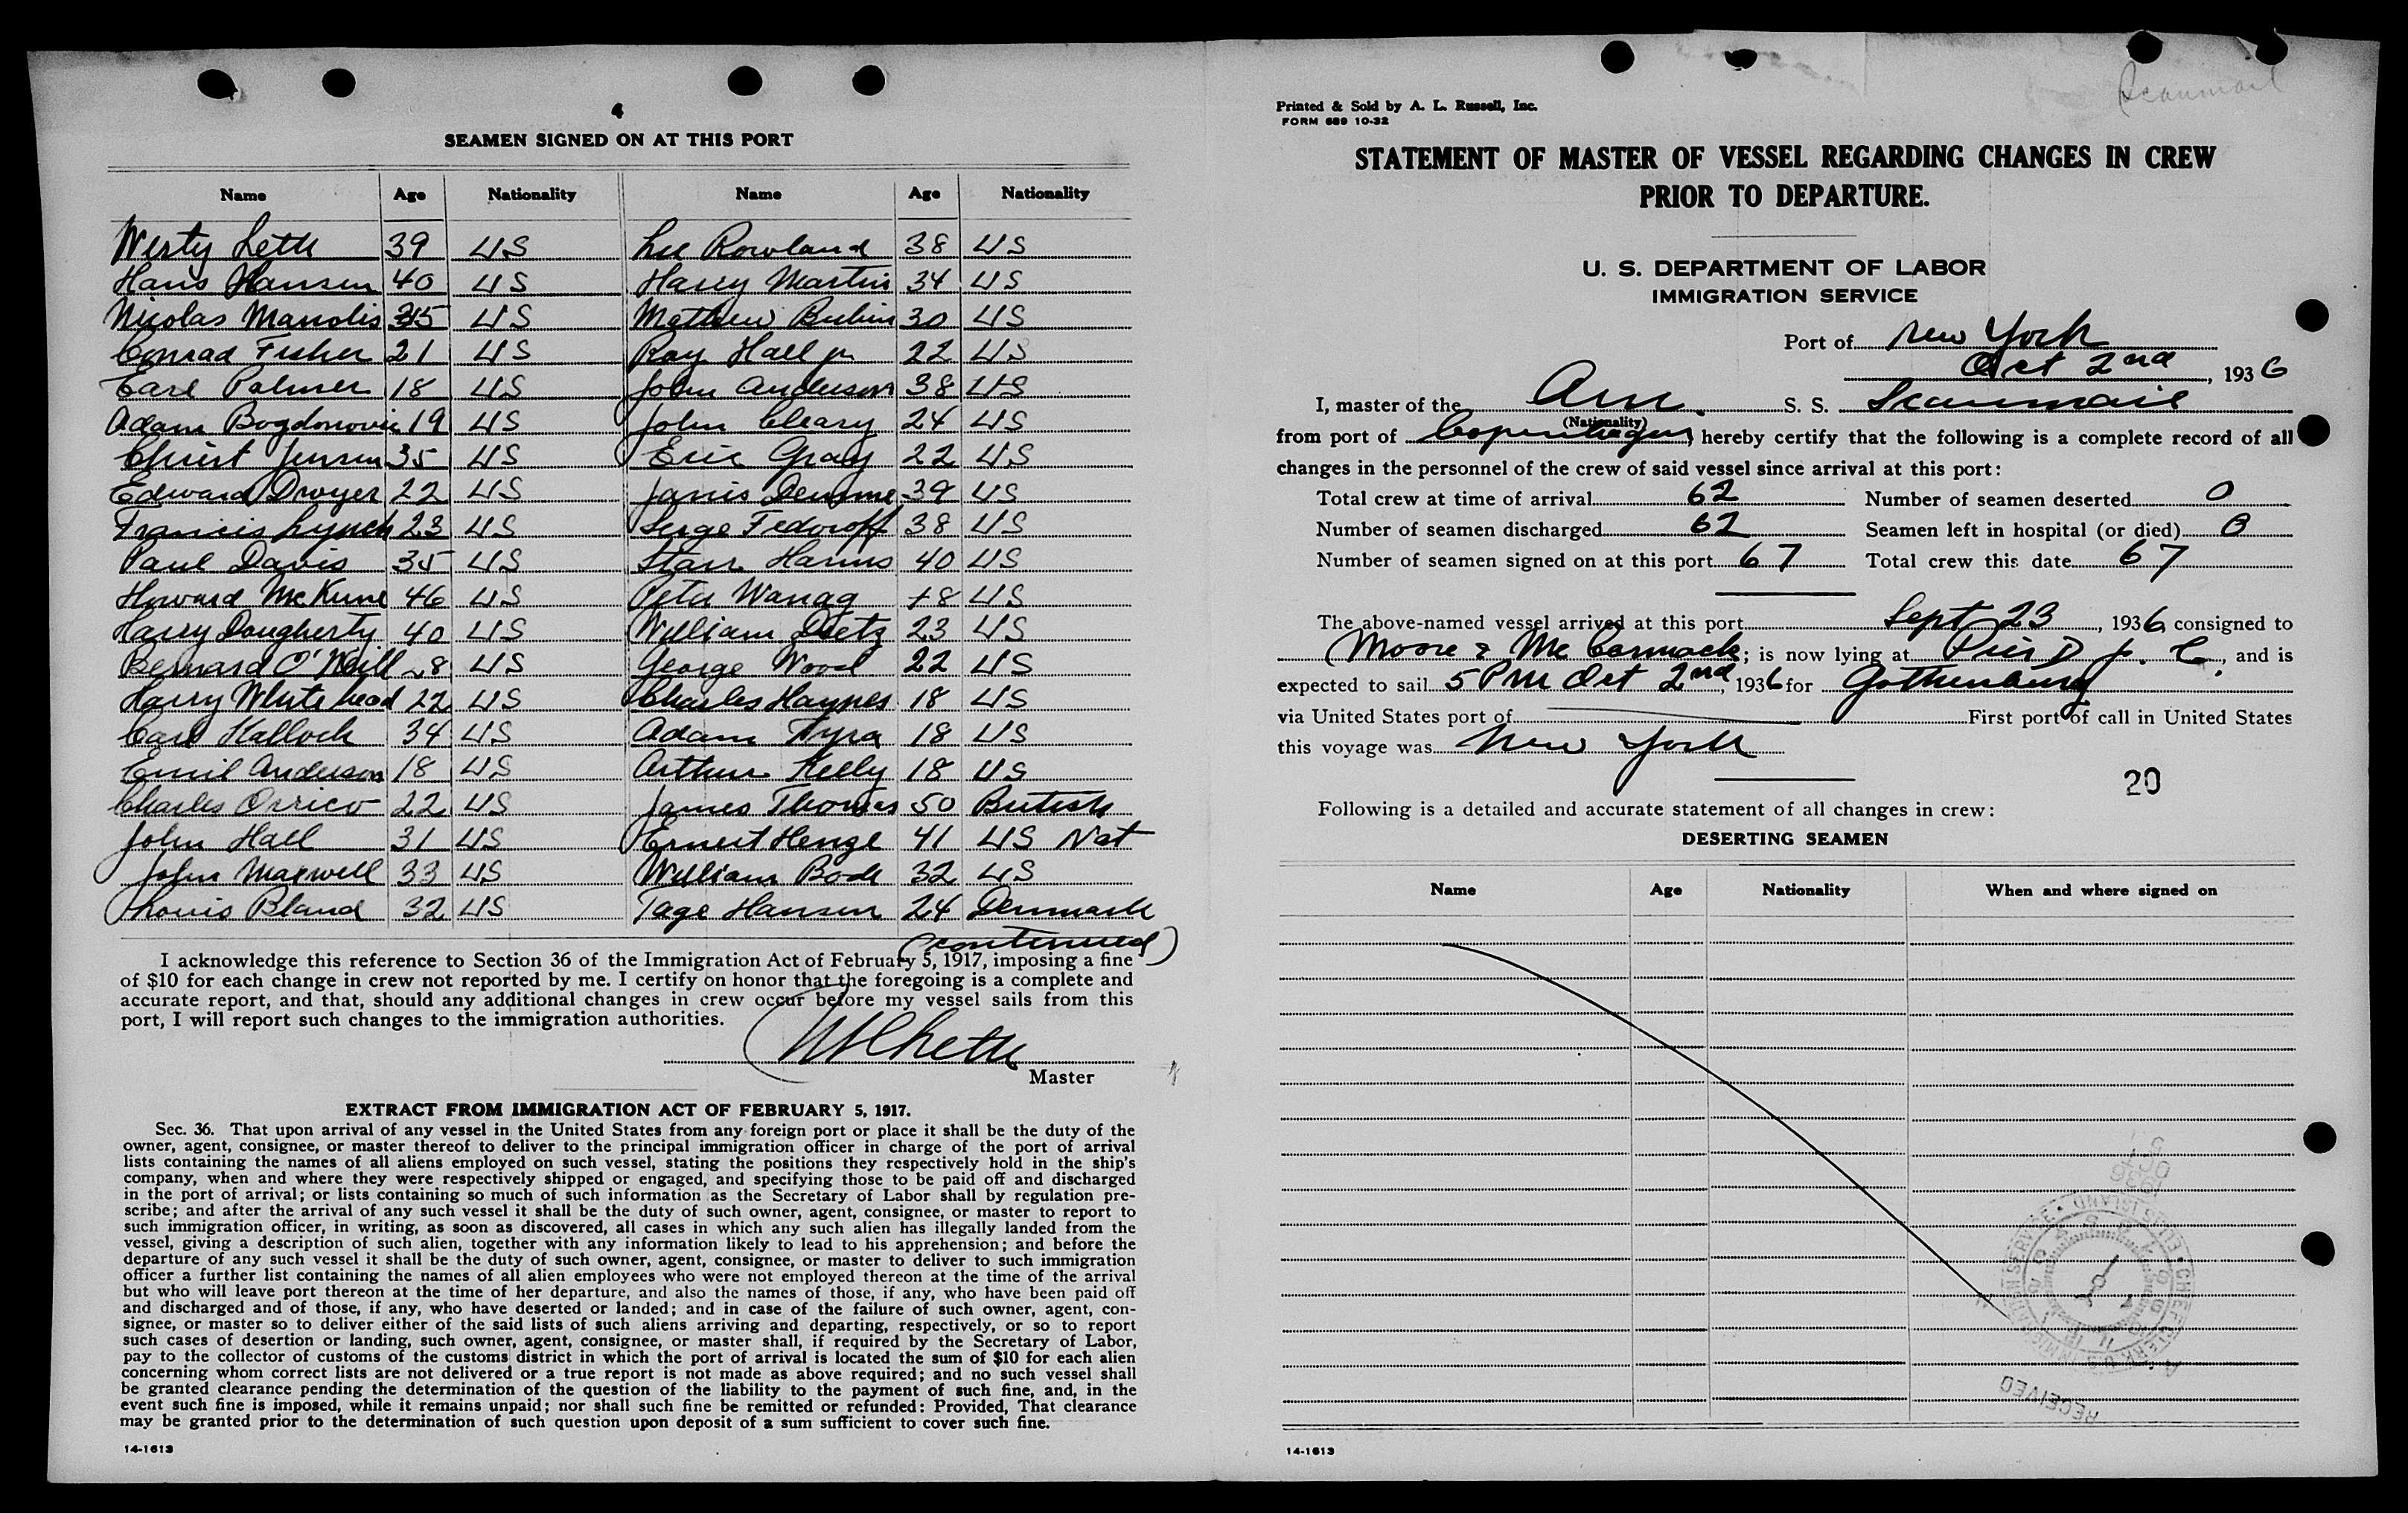 4
SEAMEN SIGNED ON AT THIS PORT
Name Age Nationality Name Age Nationality
Werty Leth 39 US Lee Rowland 38 US
Hans Hansen 40 US Harry Martin 34 US
Nicolas Manolis 35 US Mathew Bubin 30 US
Conrad Fisher 21 US Ray Hall jr 22 US
Earl Palmer 18 US John Anderson 38 US
Adam Bogdonovic 19 US John Cleary 24 US
Christ Jensen 35 US Eric Gray 22 US
Edward Dwyer 22 US Janis Demme 39 US
Francis Lynch 23 US Serge Fedoroff 38 US
Paul Davis 35 US Starr Harms 40 US
Howard McKune 46 US Peter Wanag 48 US
Harry Dougherty 40 US William Dietz 23 US
Bernard O'Neill 28 US George Wood 22 US
Harry Whitehead 22 US Charles Haynes 18 US
Carl Hallock 34 US Adam Fyra 18 US
Emil Anderson 18 US Arthur Kelly 18 US
Charles Orrico 22 US James Thomas 50 British
John Hall 31 US Ernest Henge 41 US Nat
John Maxwell 33 US William Bode 32 US
Louis Bland 32 US Tage Hansen 24 Denmark
(continued)
I acknowledge this reference to Section 36 of the Immigration Act of February 5, 1917, imposing a fine
of $10 for each change in crew not reported by me. I certify on honor that the foregoing is a complete and
accurate report, and that, should any additional changes in crew occur before my vessel sails from this
port, I will report such changes to the immigration authorities.
Master
EXTRACT FROM IMMIGRATION ACT OF FEBRUARY 5, 1917.
Sec. 36. That upon arrival of any vessel in the United States from any foreign port or place it shall be the duty of the
owner, agent, consignee, or master thereof to deliver to the principal immigration officer in charge of the port of arrival
lists containing the names of all aliens employed on such vessel, stating the positions they respectively hold in the ship's
company, when and where they were respectively shipped or engaged, and specifying those to be paid off and discharged
in the port of arrival; or lists containing so much of such information as the Secretary of Labor shall by regulation pre-
scribe; and after the arrival of any such vessel it shall be the duty of such owner, agent, consignee, or master to report to
such immigration officer, in writing, as soon as discovered, all cases in which any such alien has illegally landed from the
vessel, giving a description of such alien, together with any information likely to lead to his apprehension; and before the
departure of any such vessel it shall be the duty of such owner, agent, consignee, or master to deliver to such immigration
officer a further list containing the names of all alien employees who were not employed thereon at the time of the arrival
but who will leave port thereon at the time of her departure, and also the names of those, if any, who have been paid off
and discharged and of those, if any, who have deserted or landed; and in case of the failure of such owner, agent, con-
signee, or master so to deliver either of the said lists of such aliens arriving and departing, respectively, or so to report
such cases of desertion or landing, such owner, agent, consignee, or master shall, if required by the Secretary of Labor,
pay to the collector of customs of the customs district in which the port of arrival is located the sum of $10 for each alien
concerning whom correct lists are not delivered or a true report is not made as above required; and no such vessel shall
be granted clearance pending the determination of the question of the liability to the payment of such fine, and, in the
event such fine is imposed, while it remains unpaid; nor shall such fine be remitted or refunded: Provided, That clearance
may be granted prior to the determination of such question upon deposit of a sum sufficient to cover such fine.
14-1613
Scanmail
Printed & Sold by A. L. Russell, Inc.
FORM 689 10-32
STATEMENT OF MASTER OF VESSEL REGARDING CHANGES IN CREW
PRIOR TO DEPARTURE.
U. S. DEPARTMENT OF LABOR
IMMIGRATION SERVICE
Port of New York
Oct 2nd, 1936
I, master of the Am. S. S. Scanmail
(Nationality)
from port of Copenhagen, hereby certify that the following is a complete record of all
changes in the personnel of the crew of said vessel since arrival at this port:
Total crew at time of arrival 62 Number of seamen deserted 0
Number of seamen discharged 62 Seamen left in hospital (or died) 0
Number of seamen signed on at this port 67 Total crew this date 67
The above-named vessel arrived at this port Sept 23, 1936 consigned to
Moore & McCormack; is now lying at Pier D J. C., and is
expected to sail 5 PM Oct 2nd, 1936 for Gothenburg
via United States port of First port of call in United States
this voyage was New York
20
Following is a detailed and accurate statement of all changes in crew:
DESERTING SEAMEN
Name Age Nationality When and where signed on
RECEIVED
14-1613